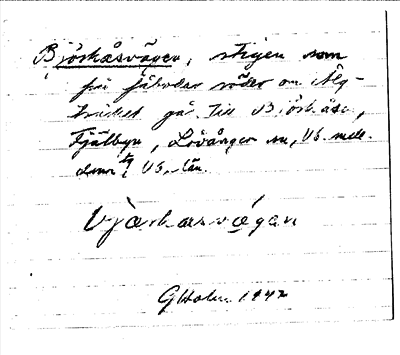 Björkåsvägen, stigen som
från fäbodar söder om Älg-
träsket går till Björkåsen,
Fjälbyn, Lövånger sn, Vb. mell.
 Vb. län.
Vjärkasvégan
G Holm 1942